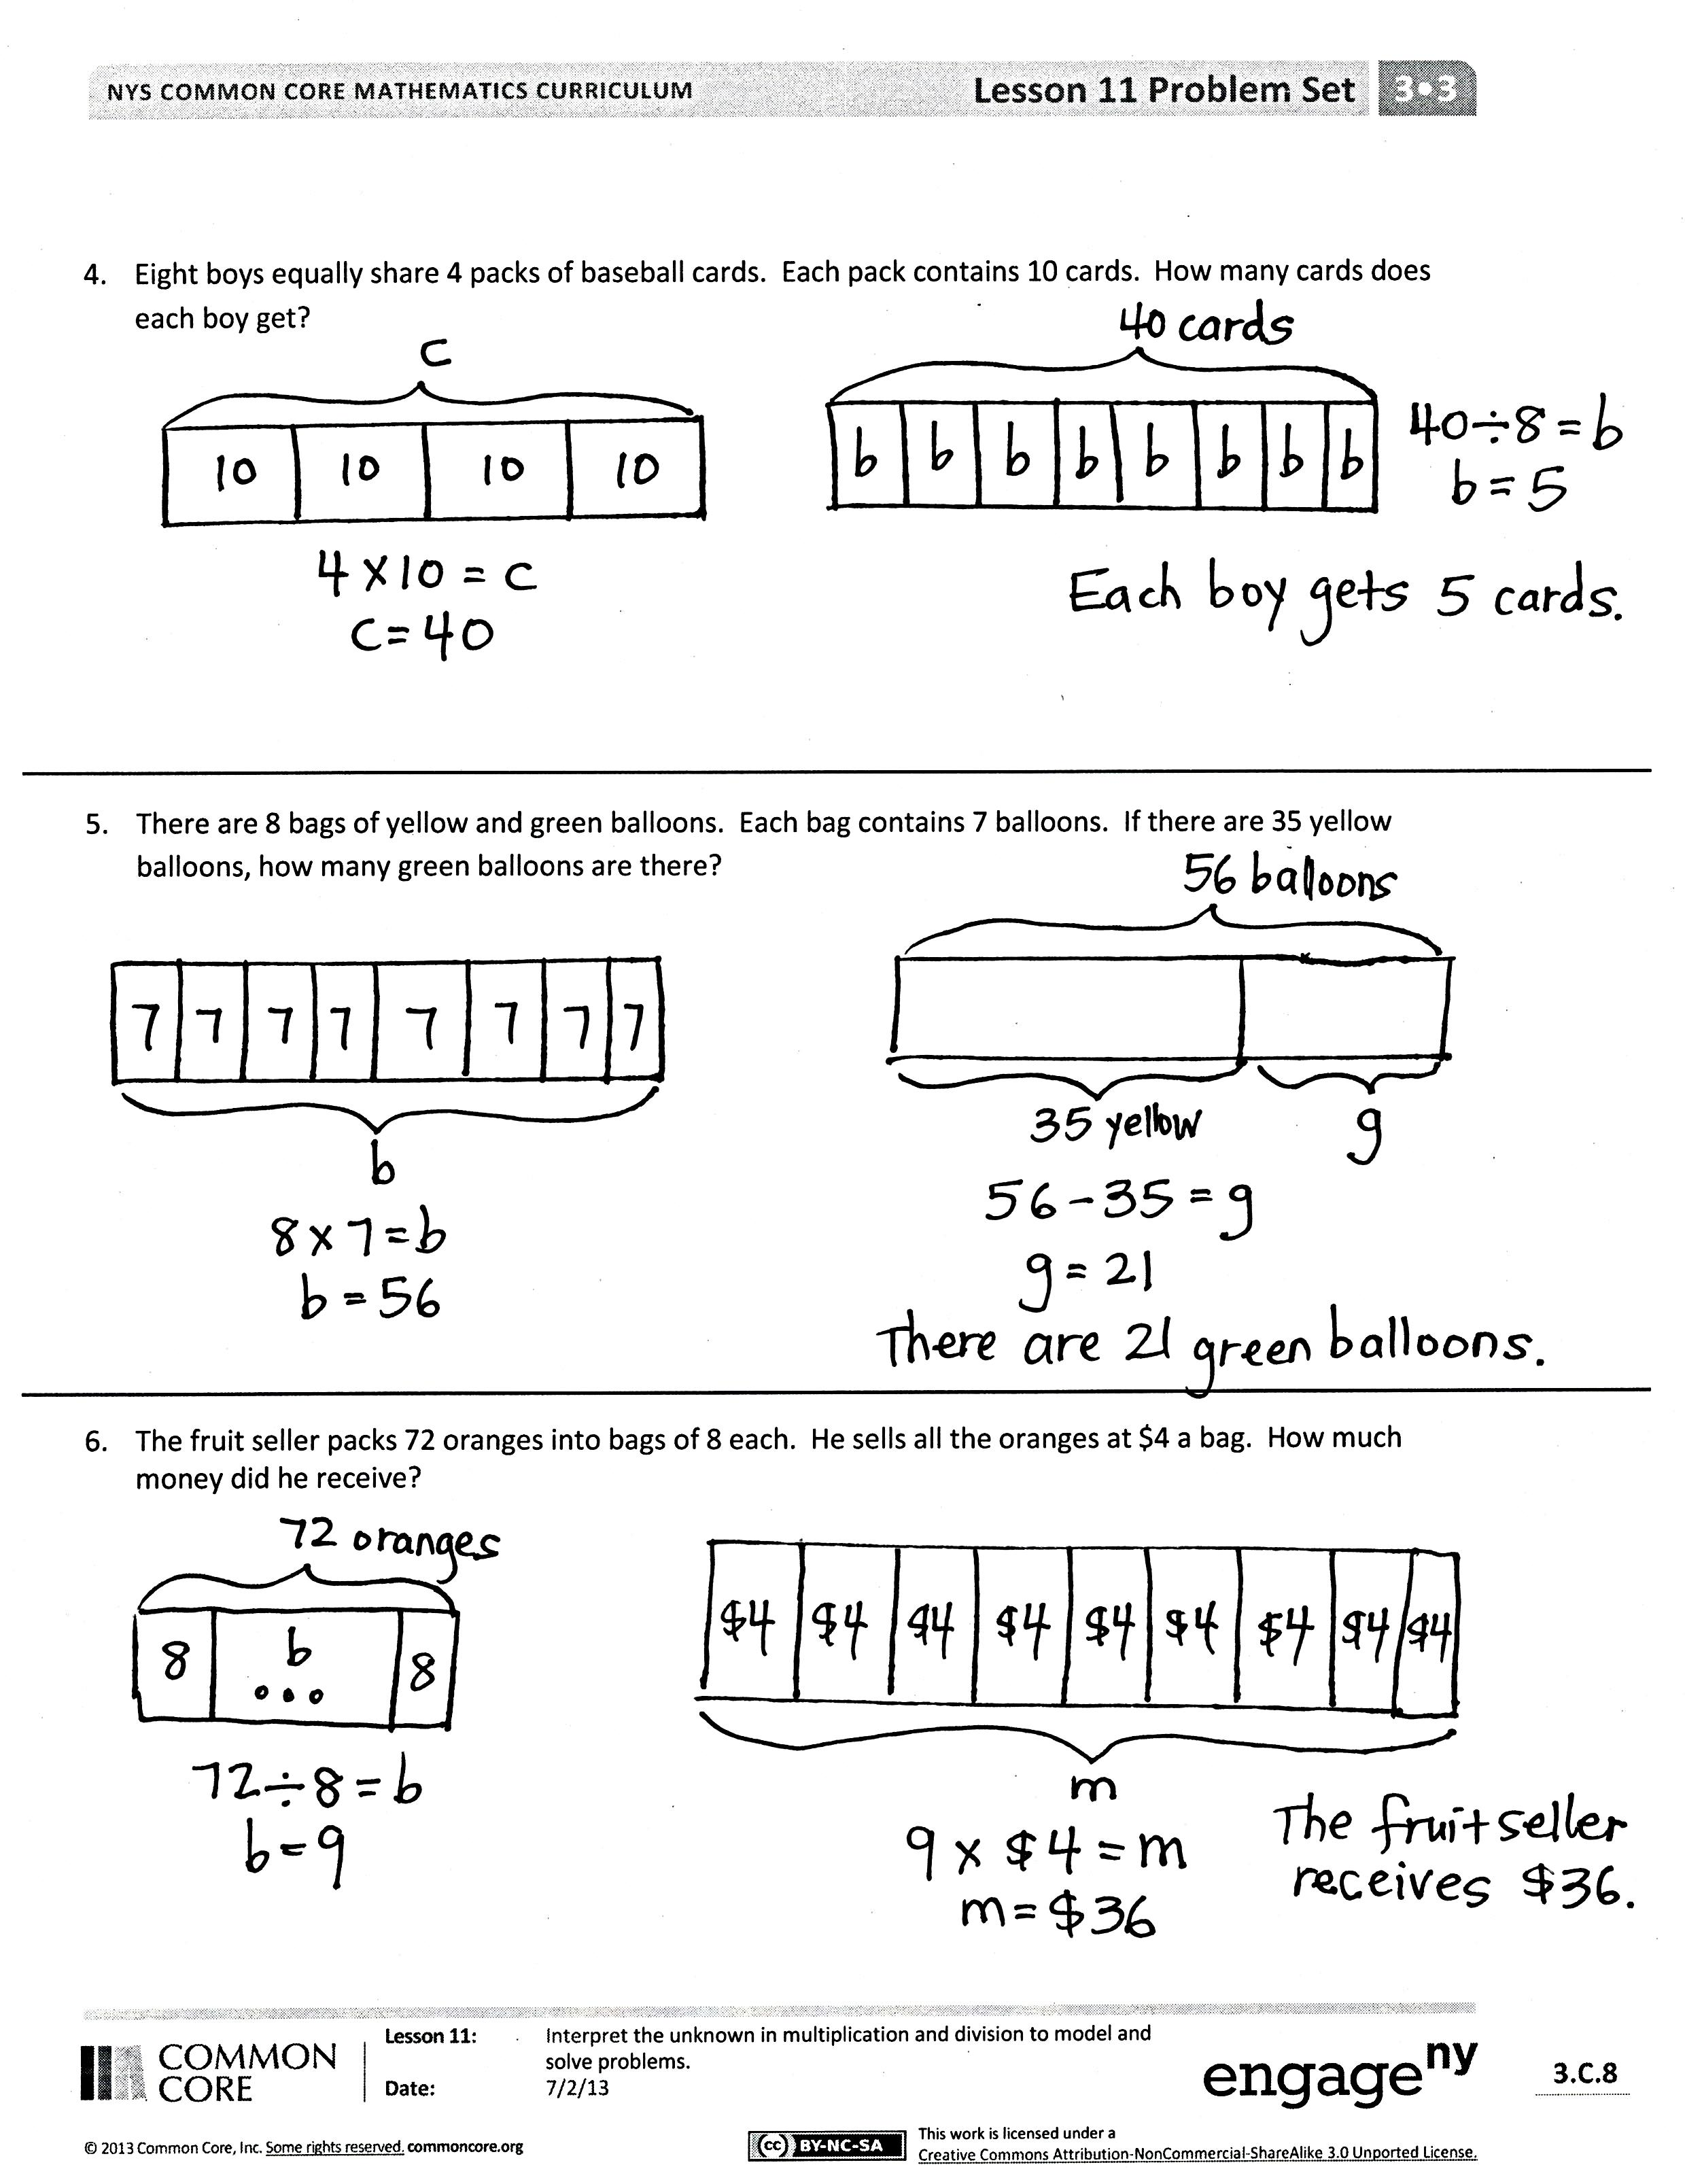 NYS COMMON CORE MATHEMATICS CURRICULUM
Lesson 11 Problem Set
3•3
4. Eight boys equally share 4 packs of baseball cards. Each pack contains 10 cards. How many cards does
each boy get?
c
10 10 10 10
4 × 10 = c
c = 40
40 cards
b b b b b b b b
40 ÷ 8 = b
b = 5
Each boy gets 5 cards.
5. There are 8 bags of yellow and green balloons. Each bag contains 7 balloons. If there are 35 yellow
balloons, how many green balloons are there?
7 7 7 7 7 7 7 7
b
8 × 7 = b
b = 56
56 balloons
35 yellow
g
56 - 35 = g
g = 21
There are 21 green balloons.
6. The fruit seller packs 72 oranges into bags of 8 each. He sells all the oranges at $4 a bag. How much
money did he receive?
72 oranges
8 b ... 8
72 ÷ 8 = b
b = 9
$4 $4 $4 $4 $4 $4 $4 $4 $4
m
9 × $4 = m
m = $36
The fruit seller
receives $36.
COMMON
CORE
Lesson 11: Interpret the unknown in multiplication and division to model and
solve problems.
Date: 7/2/13
engageny
3.C.8
© 2013 Common Core, Inc. Some rights reserved. commoncore.org
cc BY-NC-SA
This work is licensed under a
Creative Commons Attribution-NonCommercial-ShareAlike 3.0 Unported License.